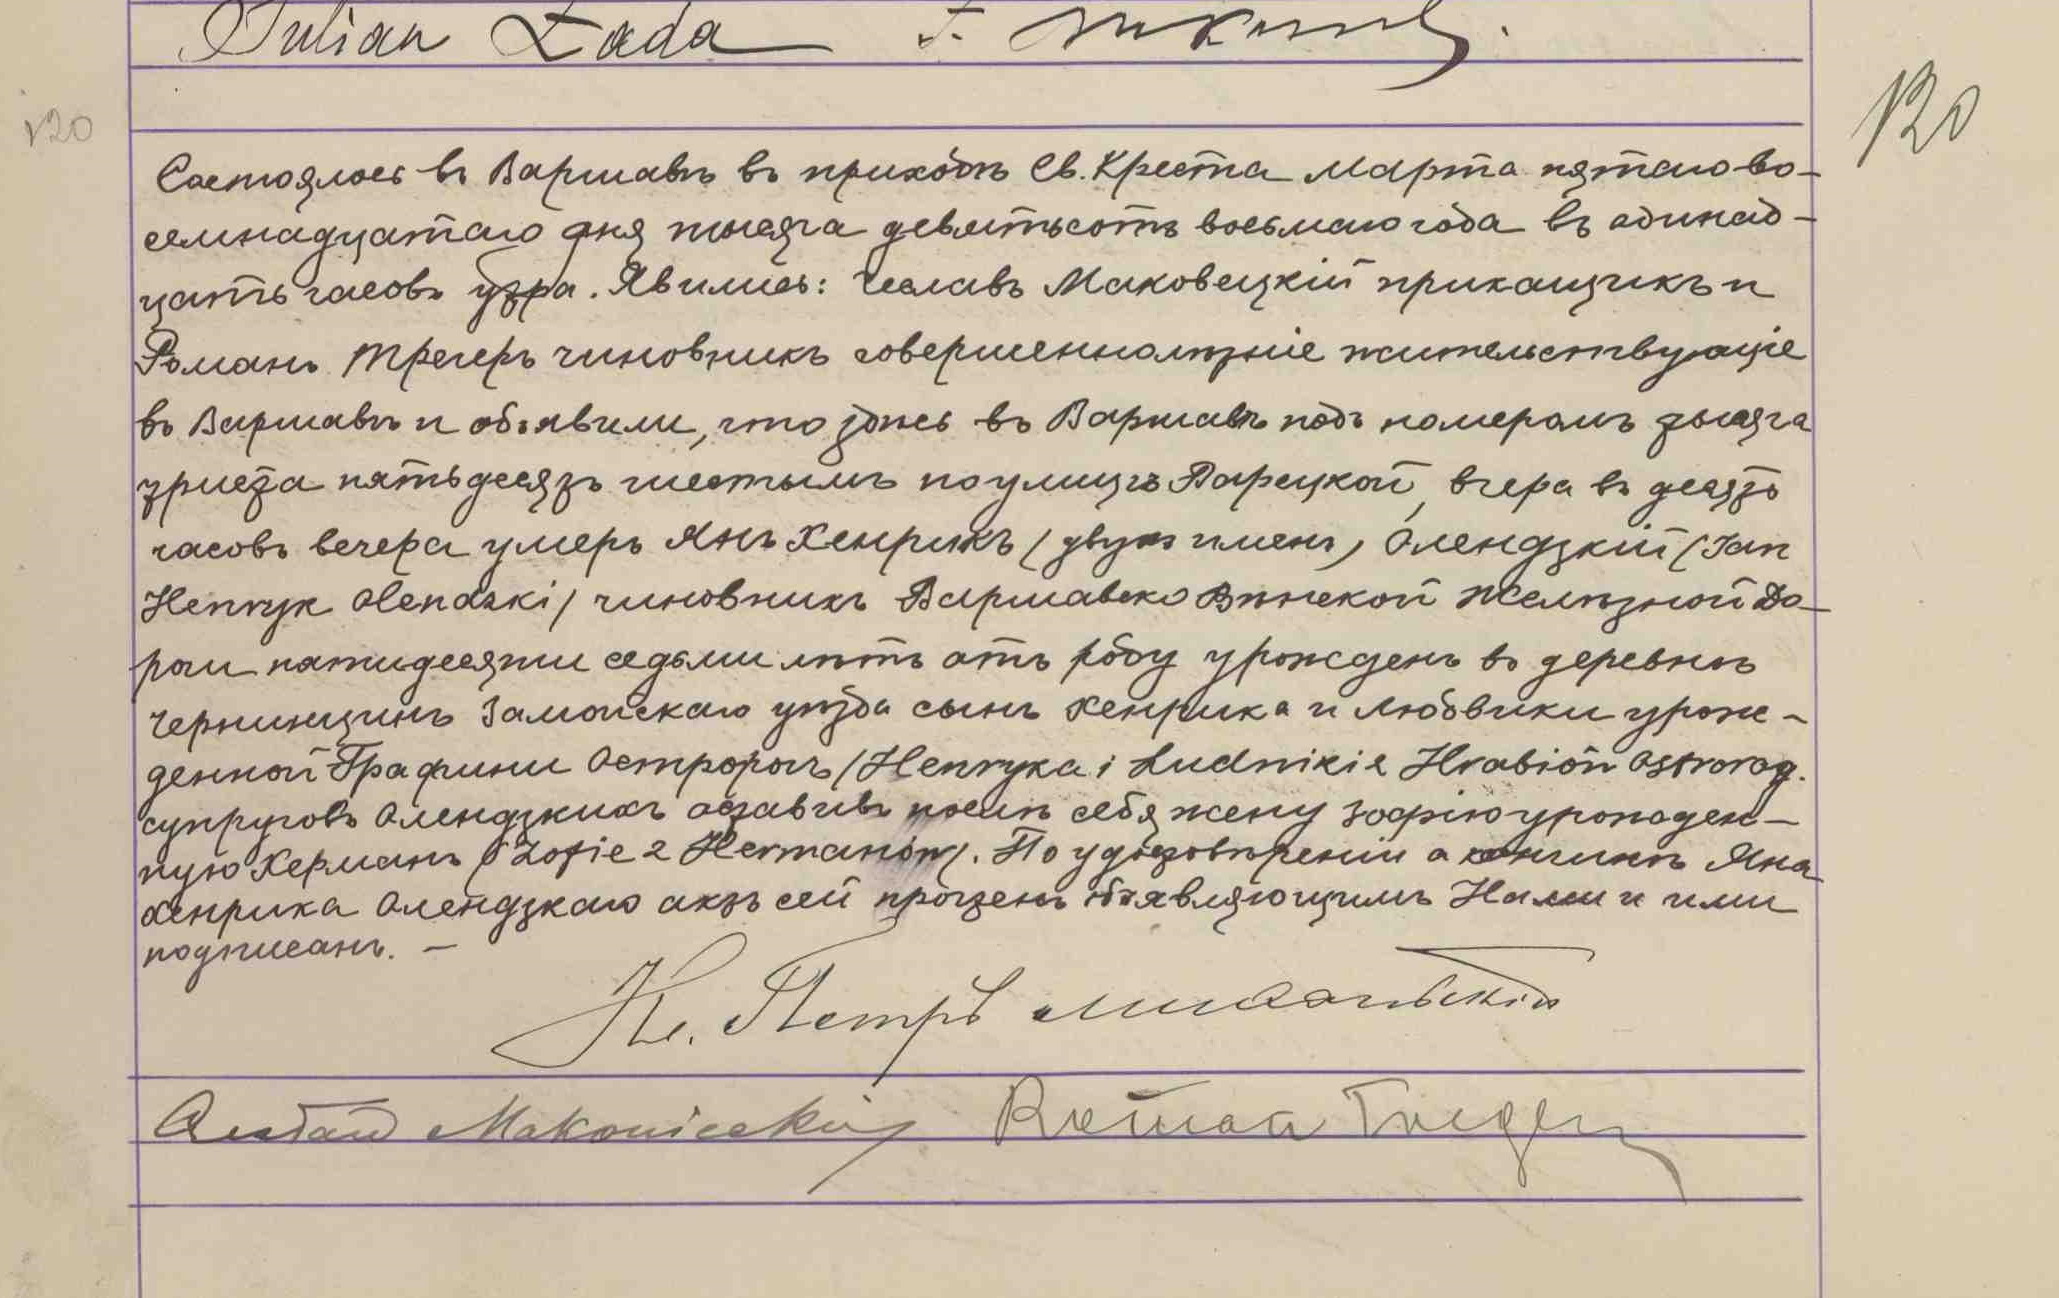 Julian Łada
120
120
Состоялось въ Варшавѣ въ приходѣ Св. Креста Марта пятаго во-
семнадцатаго дня тысяча девятьсотъ восьмаго года въ одинад-
цать часовъ утра. Явились: Чеславъ Маковецкій прикащикъ и
Романъ Трегеръ чиновникъ совершеннолѣтніе жительствующіе
въ Варшавѣ и объявили, что здѣсь въ Варшавѣ подъ номеромъ тысяча
триста пятьдесятъ шестымъ по улицѣ Варецкой, вчера въ десять
часовъ вечера умеръ Янъ Хенрикъ (двухъ именъ) Олендзкій (Jan
Henryk Olendzki) чиновникъ Варшавско Вѣнской Желѣзной До-
роги пятидесяти седьми лѣтъ отъ роду урожденъ въ деревнѣ
Замойскаго уѣзда сынъ Хенрика и Людвики урож-
денной Графини Остророгъ (Henryka i Ludwiki z Hrabiów Ostrorog.
супруговъ Олендзкихъ оставивъ послѣ себя жену Зофію урожден-
ную Херманъ (Zofie z Hermanów). По удостовѣреніи о кончинѣ Яна
Хенрика Олендзкаго актъ сей прочтенъ объявляющимъ Нами и ими
подписанъ. —
Кс. Петръ
Makowiecki Roman Treger